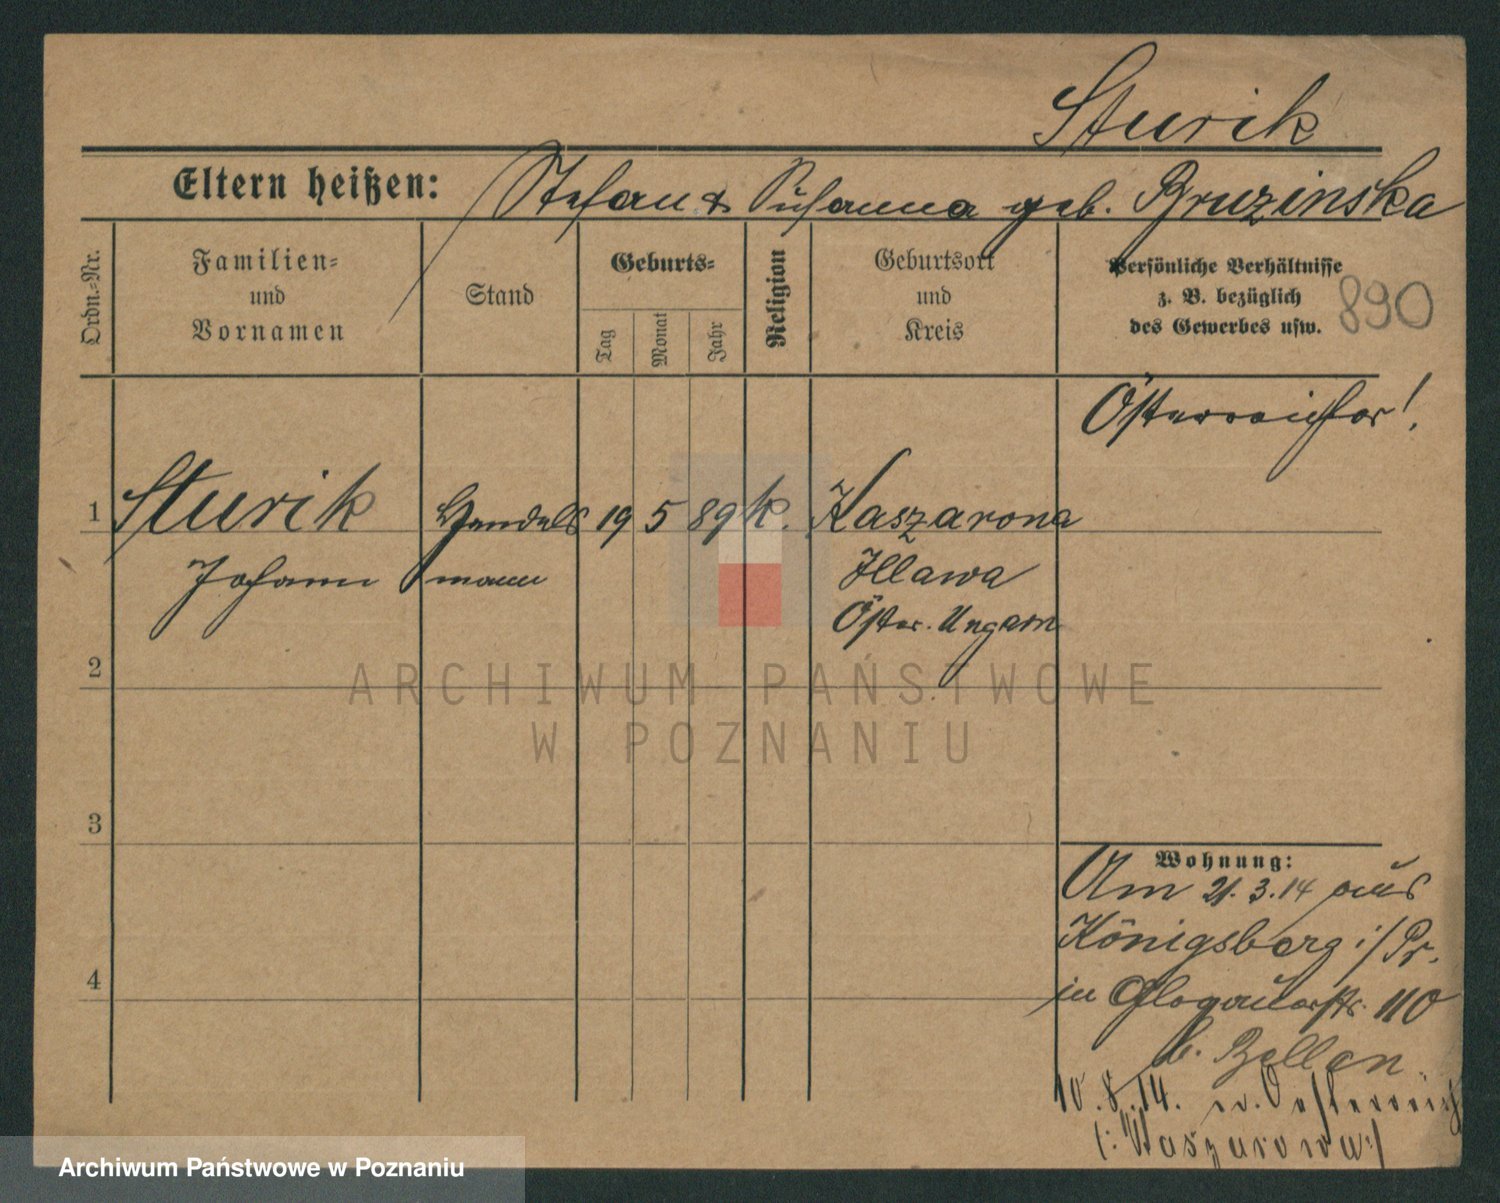 Sturik
Eltern heißen: Stefan & Susanna geb. Bruzinska
Ordn.-Nr.
Familien-
und
Vornamen
Stand
Geburts-
Tag
Monat
Jahr
Religion
Geburtsort
und
Kreis
Persönliche Verhältnisse
z. B. bezüglich
des Gewerbes usw.
890
Österreicher!
1 Sturik Handels 19 5 89 k. Kaszarona
Johann mann Illawa
Öster. Ungarn
2
3
4
Wohnung:
Am 21.3.14 aus
Königsberg i/Pr.
in Glogauerstr. 110
b.
10.8.14. n. Oesterreich
(: Kaszarowa :)
ARCHIWUM PAŃSTWOWE
W POZNANIU
Archiwum Państwowe w Poznaniu